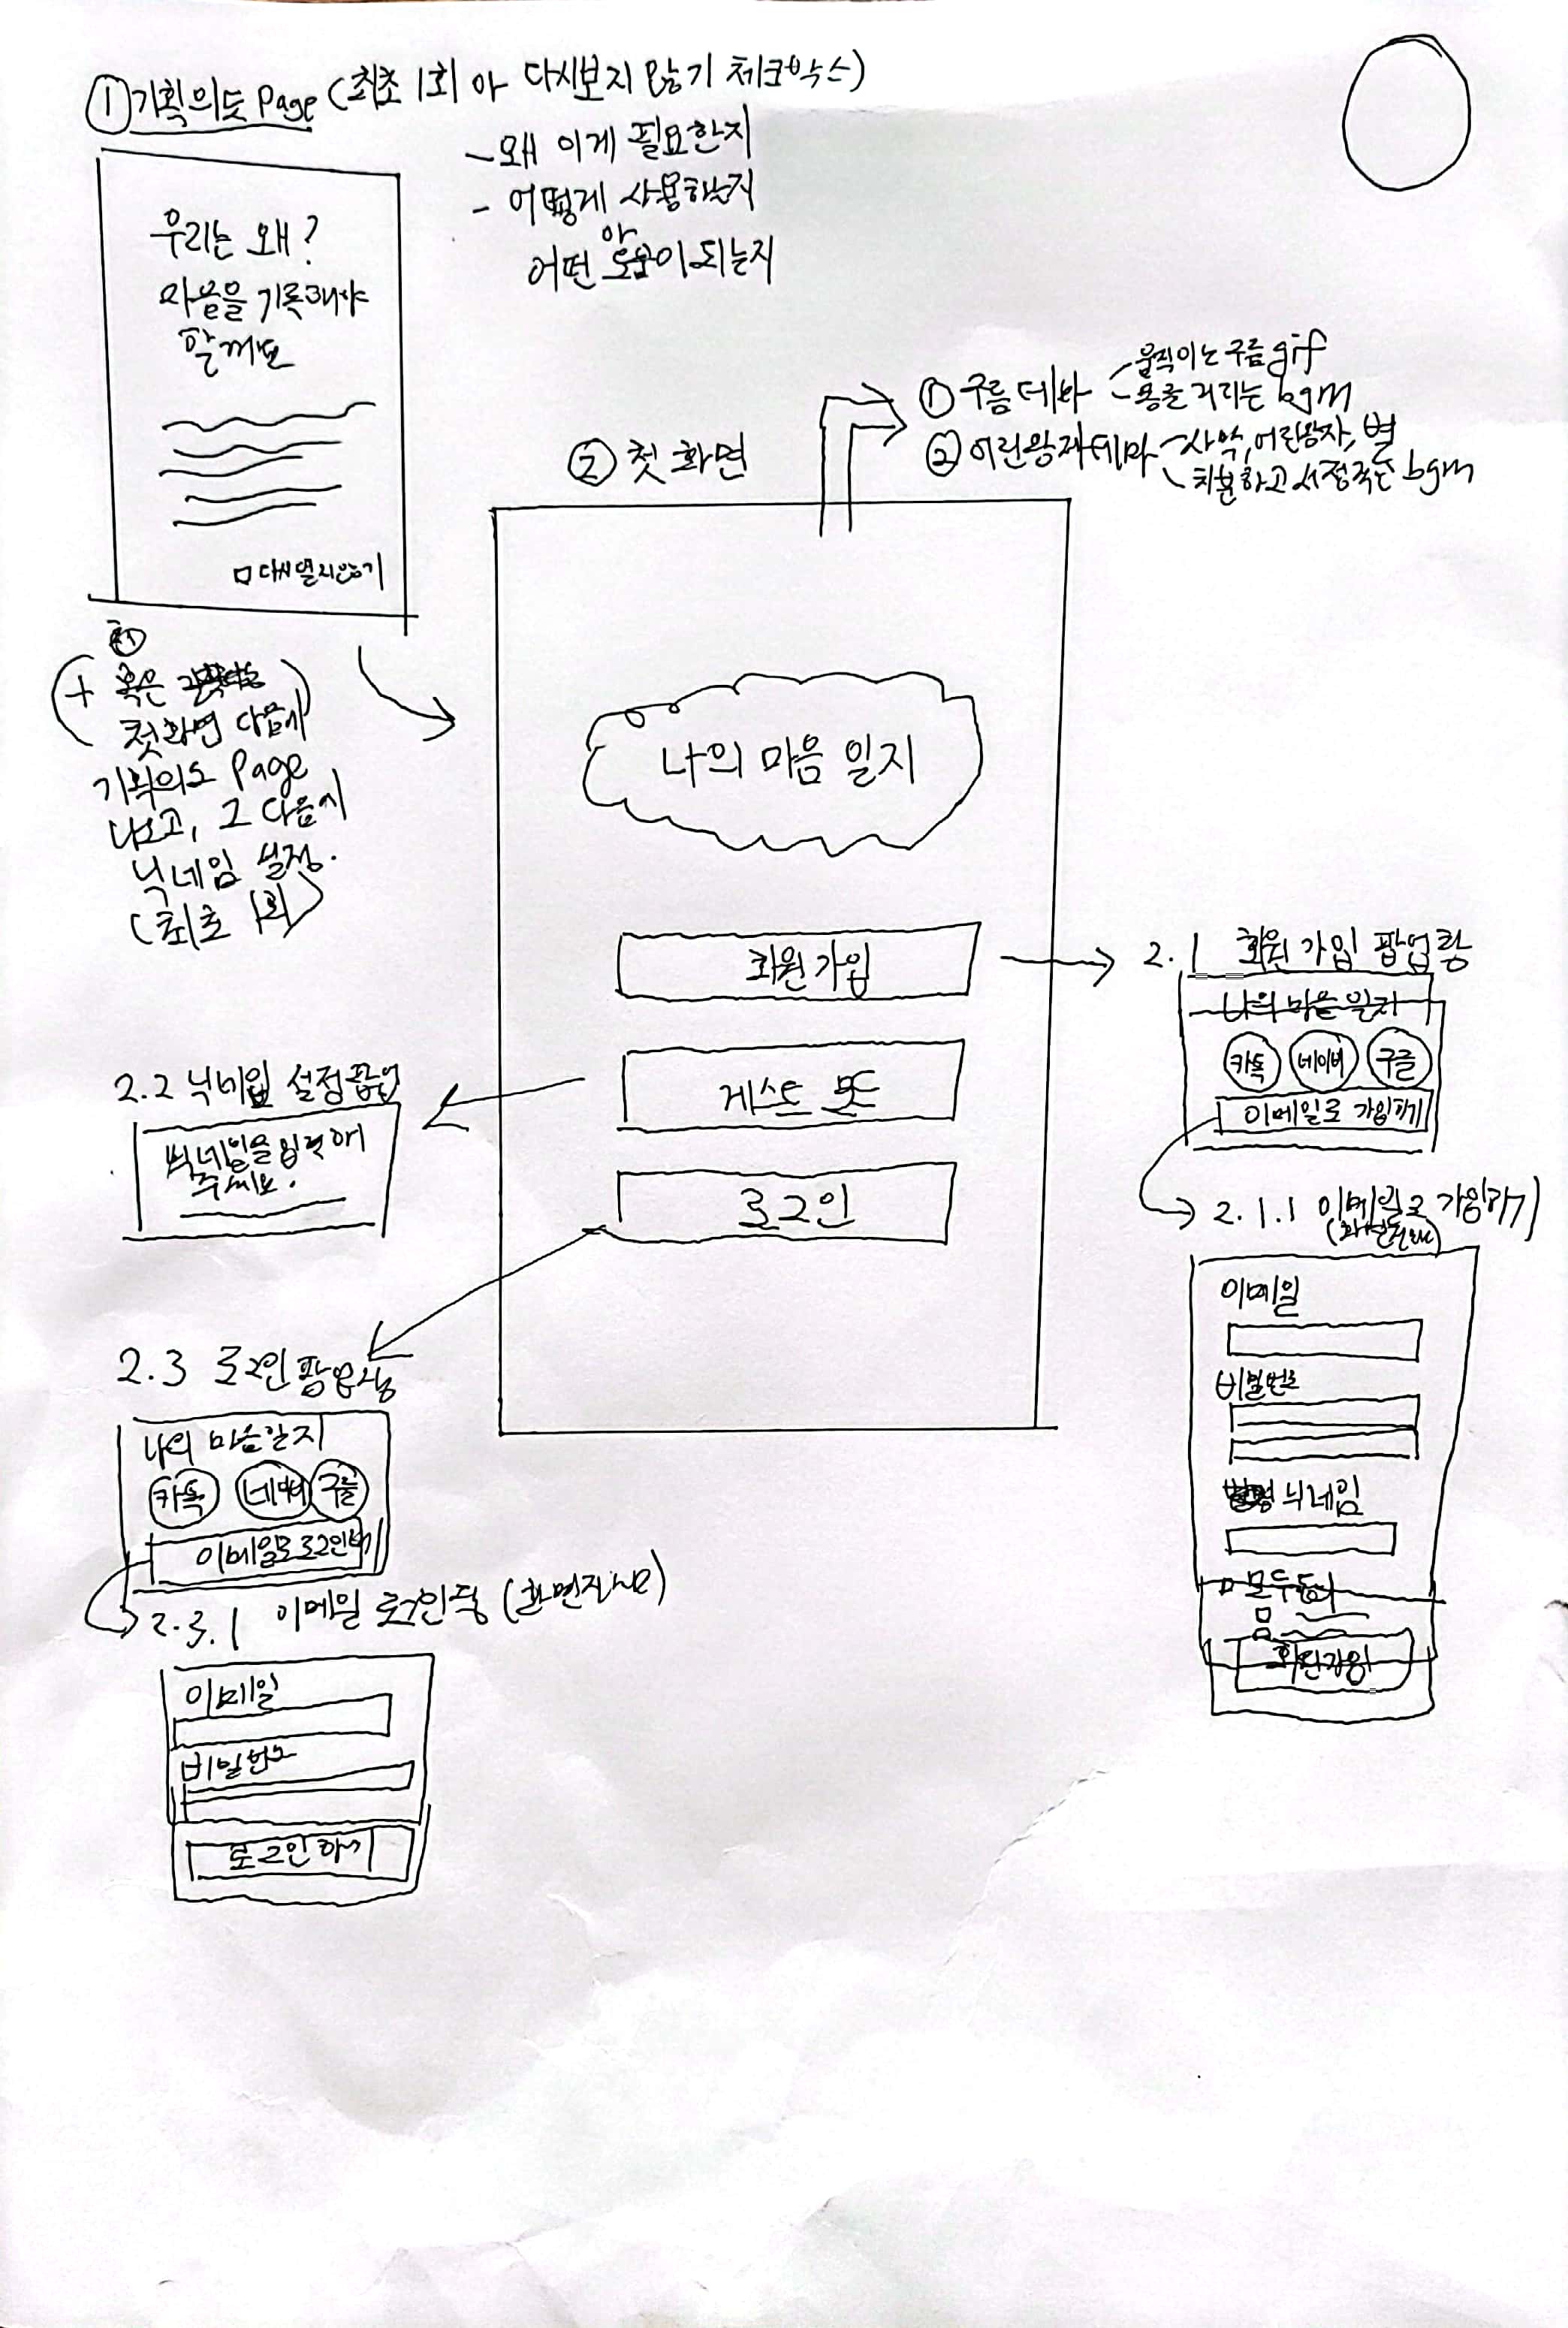 ① 기획의도 Page (최초 1회 아 다시보지 않기 체크박스)
- 왜 이게 필요한지
- 어떻게 사용하는지
어떤 도움이 되는지
우리는 왜?
마음을 기록해야
할까요
□ 다시열지않기
(+ 혹은
첫화면 다음에)
기획의도 Page
나오고, 그 다음에
닉네임 설정.
(최초 1회)
② 첫 화면
① 구름 테마 - 움직이는 구름 gif
- 몽글거리는 bgm
② 어린왕자테마 - 사막, 어린왕자, 별
- 차분하고 서정적는 bgm
나의 마음 일지
회원가입
게스트 모드
로그인
2.1 회원 가입 팝업창
나의 마음 일지
카톡 네이버 구글
이메일로 가입하기
2.1.1 이메일로 가입하기
(화면전환)
이메일
비밀번호
닉네임
□ 모두동의
회원가입
2.2 닉네임 설정팝업
닉네임을 입력해
주세요.
2.3 로그인 팝업창
나의 마음일지
카톡 네이버 구글
이메일로 로그인하기
2.3.1 이메일 로그인창 (화면전환)
이메일
비밀번호
로그인 하기